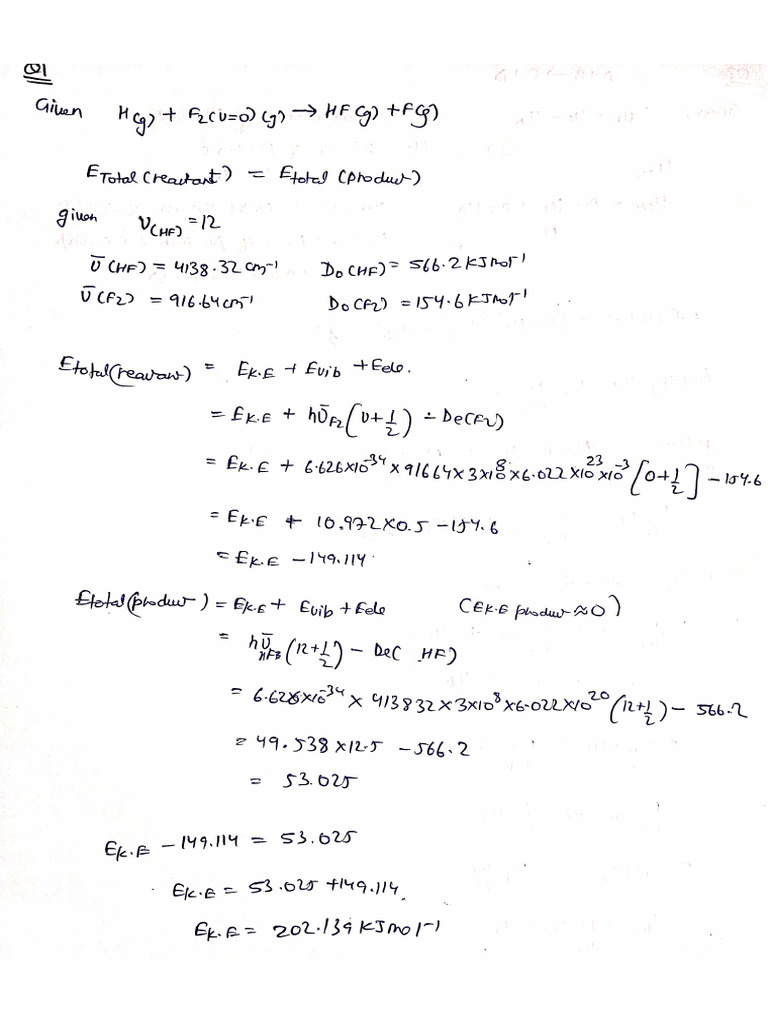 Q1
Given H(g) + F2(υ=0) (g) → HF(g) + F(g)
ETotal(reactant) = Etotal (product)
given υ(HF) = 12
ῡ(HF) = 4138.32 cm-1 Do(HF) = 566.2 KJmol-1
ῡ(F2) = 916.64 cm-1 Do(F2) = 154.6 KJmol-1
Etotal(reactant) = EK.E + Evib + Eele.
= EK.E + hῡF2(υ+1/2) - De(F2)
= EK.E + 6.626×10-34 × 91664×3×10^8×6.022×10^23×10^-3 [0+1/2] - 154.6
= EK.E + 10.972×0.5 - 154.6
= EK.E - 149.114.
Etotal(product) = EK.E + Evib + Eele (EK.E product ≈ 0)
= hῡ (12+1/2) - De( HF)
= 6.626×10-34 × 413832×3×10^8×6.022×10^20 (12+1/2) - 566.2
= 49.538×12.5 - 566.2
= 53.025
EK.E - 149.114 = 53.025
EK.E = 53.025 + 149.114
EK.E = 202.139 KJmol-1